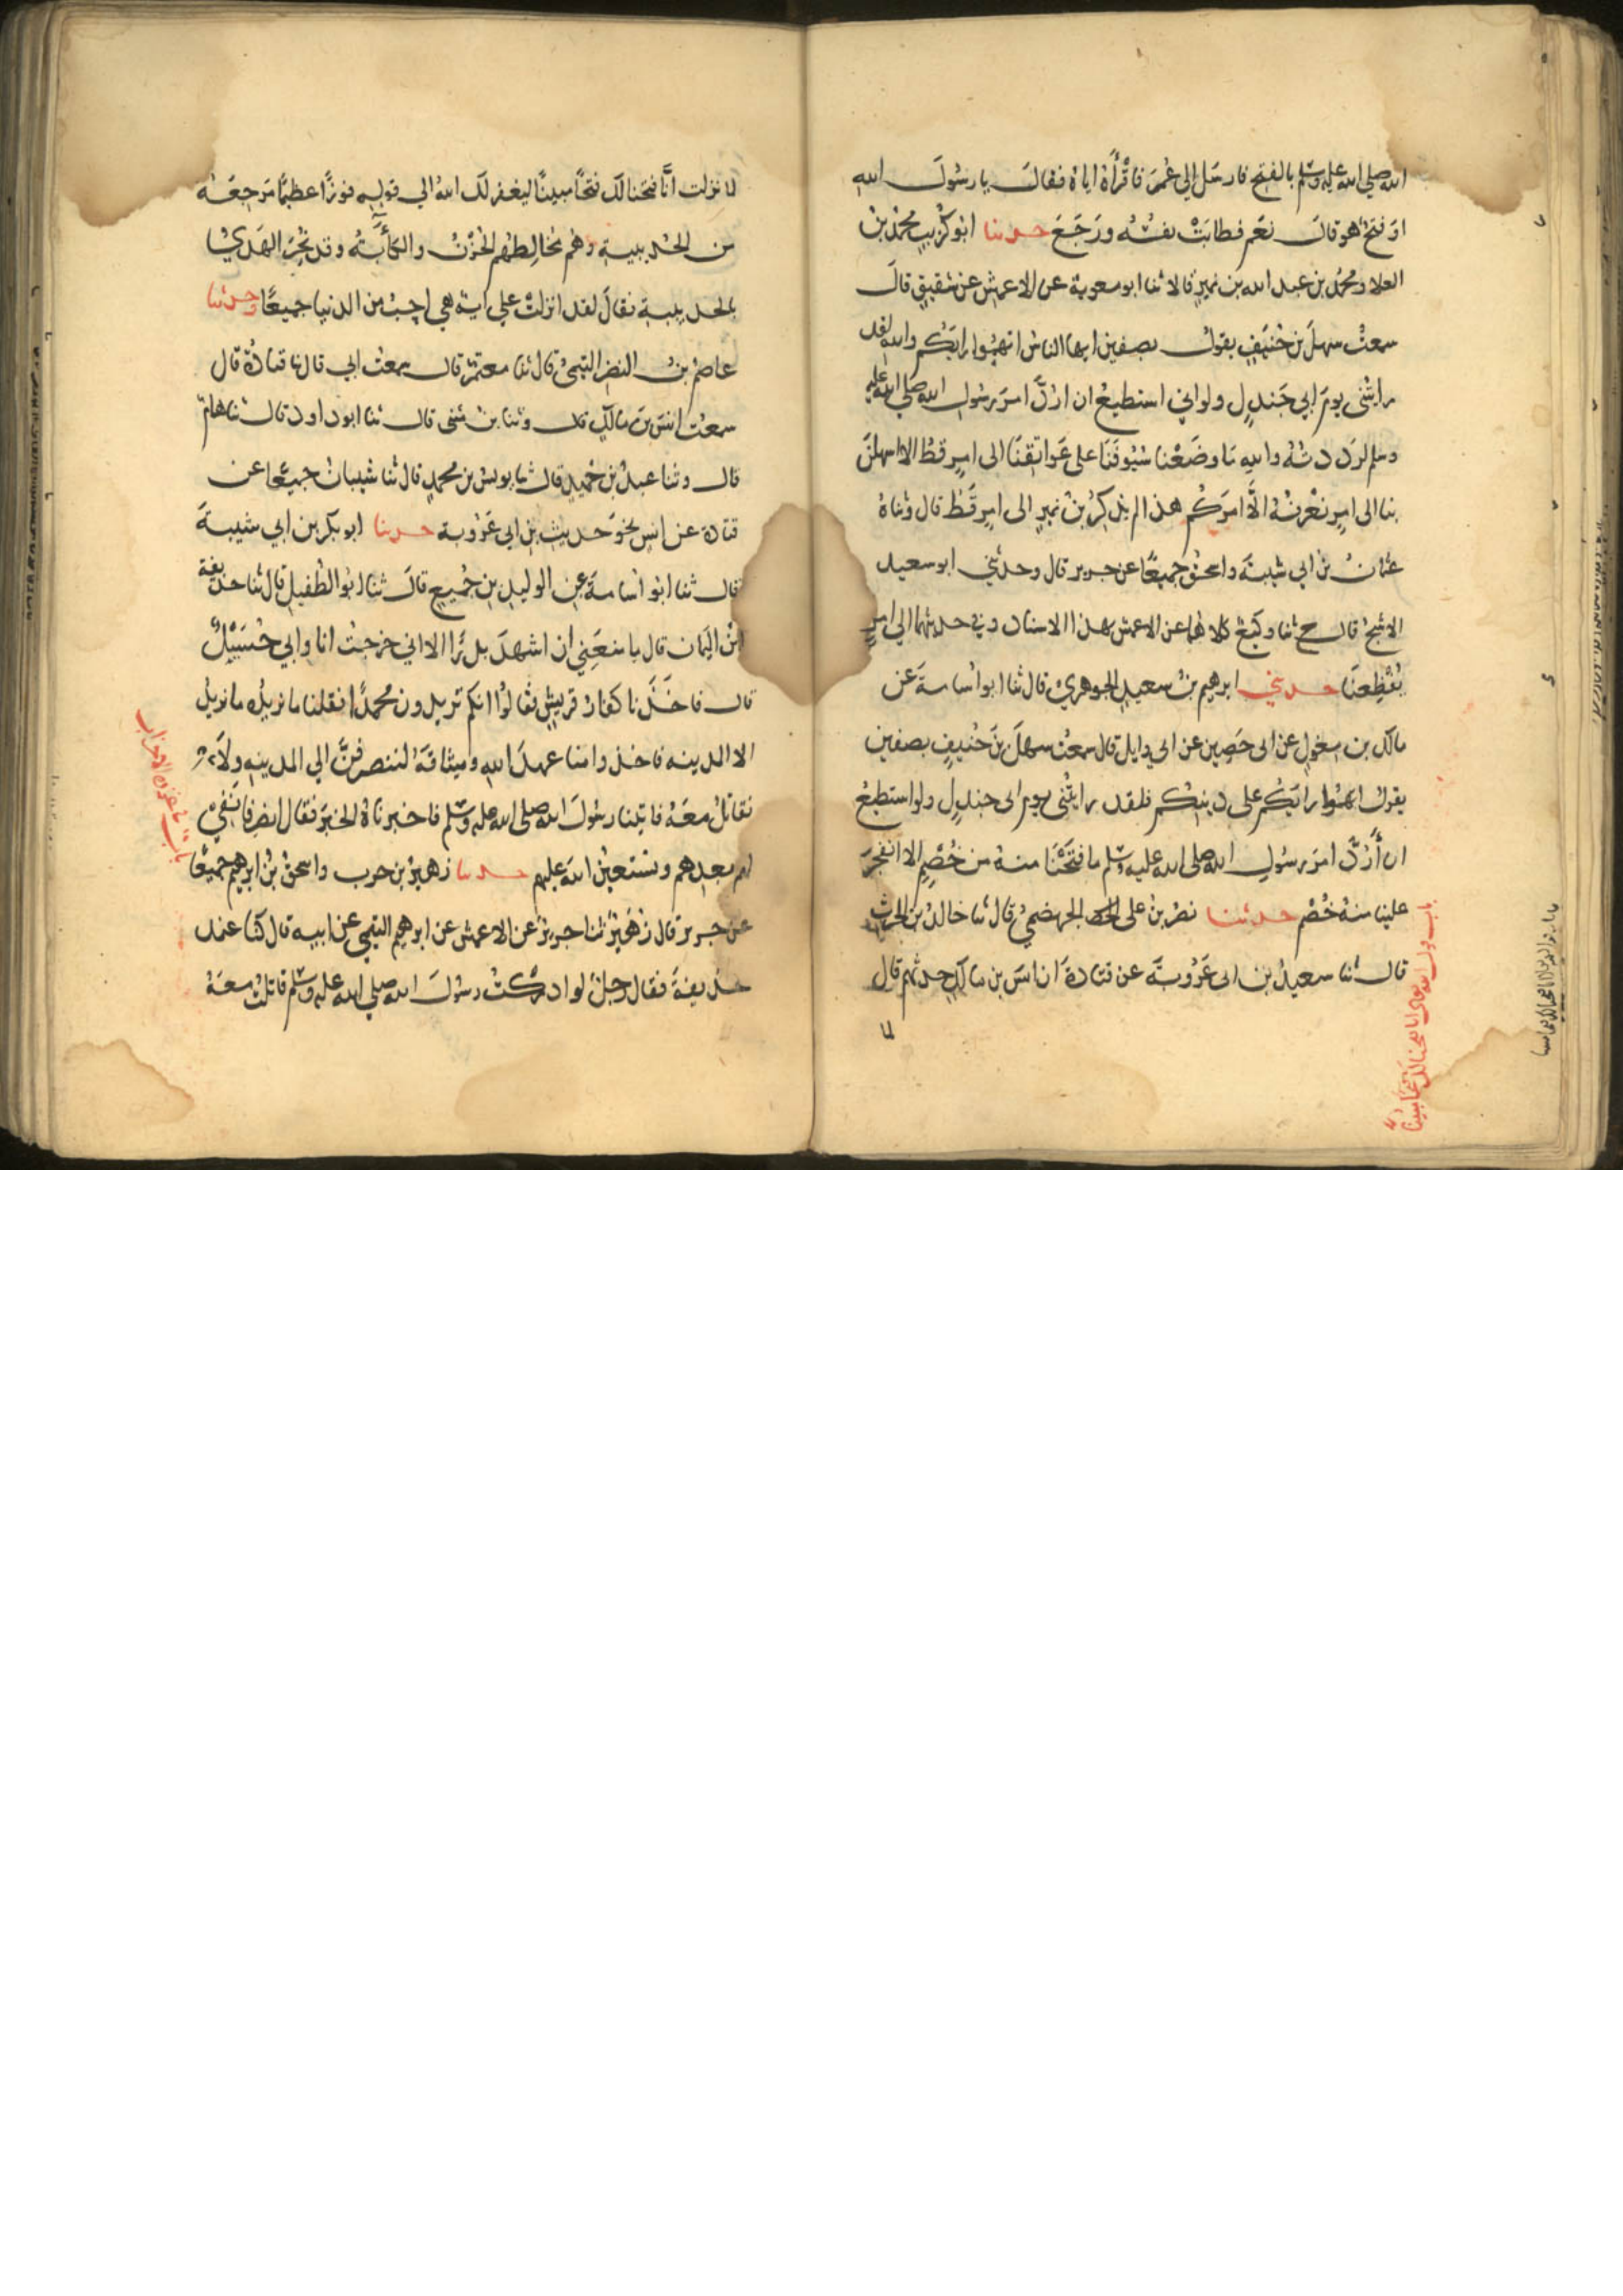 الله صلى الله عليه وسلم بالفتح فارسل الي عُمَرَ فاَقْرَأَهُ اياهُ فقالَ يا رسُولَ الله
اوَ فتحٌ هُو قالَ نعَم فطابَتْ نفسُه ورَجَعَ حدثنا ابُو كُرَيبٍ محمّدُ بنُ
العلا ومحمدُ بن عبد الله بن نميرٍ قالا ثنا ابو معوية عن الاعمش عن شقيقٍ قالَ
سمعتُ سهلَ بن حُنَيفٍ يقولُ بصفين ايها الناسُ اتهِمُوا رايَكُم والله لقد
رايتُني يومَ ابي جَندلٍ ولو اني استطيعُ ان ارُدَّ امرَ رسُولِ الله صلى الله عليه
وسلم لرَدَدتُهُ والله مَا وضَعْنا سُيُوفَنَا على عَوَاتِقِنَا الى امرٍ قطُّ الا اسهلنَ
بنا الى امرٍ نعْرِفُهُ الَّا امرَكُم هذا لم يذكرُ بنُ نميرٍ الى امرٍ قَطُّ قال وثناهُ
عثمانُ بنُ ابي شيبةَ واسحقُ جميعًا عن جرير قال وحدثني ابو سعيد
الاشجُّ قال ح ثنا وكيعٌ كلاهما عن الاعمش بهذا الاسناد وفي حديثهما الي امرٍ
يُفْظِعنَا حدثني ابرهيمُ بنُ سعيدٍ الجوهريُّ قال ثنا ابو اُسامةَ عن
مالك بن مِغولٍ عن ابى حَصِين عن ابي وايل قال سمعتُ سهلَ بنَ حُنيفٍ بصفين
يقولُ اتهِمُوا رايَكُم على دينكُم فلقد رايتُني يوم ابى جندلٍ ولو استطيعُ
ان أَرُدَّ امرَ رسولِ الله صلى الله عليه وسلم ما فتَحْنَا منهُ من خُصْمٍ الا انفجرَ
علينا منهُ خُصْمٌ حدثنا نصرُ بنُ على الجهضميُّ قال ثنا خالدُ بن الحرث
قال ثنا سعيدُ بن ابى عَرُوبَةَ عن قتادةَ ان انسَ بن مالكٍ حدثهم قال
لما
باب قول الله تعالى انا فتحنا لك فتحا مبينًا
لما نزلت انَّا فتحنا لك فتحًا مبينًا ليغفر لك الله الي قوله فوزًا عظيمًا مَرجِعَهُ
من الحُديبيةِ وهُم يُخالِطُهُم الحُزْنُ والكآبَةُ وقد نحَرَ الهَديَ
بالحديبية فقالَ لقد انزلتْ علي ايةٌ هي احبُّ من الدنيا جميعًا وحدثنا
عاصمُ بنُ النضر التيميُّ قال ثنا معتمرٌ قال سمعتُ ابي قال ثنا قتادةُ قال
سمعتُ انسَ بن مالكٍ قال وثنا بن مثنى قال ثنا ابو داود قال ثنا همامٌ
قال وثنا عبدُ بن حُميدٍ قال ثنا يونس بن محمدٍ قال ثنا شيبانُ جميعًا عن
قتادة عن انسٍ نحوَ حديثِ بنِ ابي عَرُوبة حدثنا ابو بكر بن ابي شيبةَ
قال ثنا ابُو اُسامةَ عن الوليدِ بن جُميعٍ قالَ ثنا ابُو الطُفيلِ قال ثنا حذيفة
ابن اليمان قال ما منعَنِي ان اشهدَ بدرًا الا اني خرجتُ انا وابي حُسَيْلٌ
قال فاخَذَنا كفارُ قريشٍ فقالُوا انكم تريدون محمدًا فقلنا ما نريدُه ما نريدُ
الا المدينه فاخذوا منا عهدَ اللهِ وميثاقَهُ لننصرفَنَّ الي المدينهِ ولا
نقاتلُ معَهُ فاتينا رسُولَ الله صلى الله عليه وسلم فاخبرناهُ الخبَرَ فقال انصرفا نَفِي
لهم بعهدهم ونستعينُ اللهَ عليهم حدثنا زهيرُ بن حرب واسحقُ بنُ ابرهيم جميعًا
عن جرير قال زُهَيرٌ ثنا جريرٌ عن الاعمش عن ابرهيم التيمي عن ابيه قال كنا عند
حذيفةَ فقال رجلٌ لو ادركتُ رسُولَ الله صلي الله عليه وسلم قاتلتُ معَهُ
بابُ غزوه الاحزاب